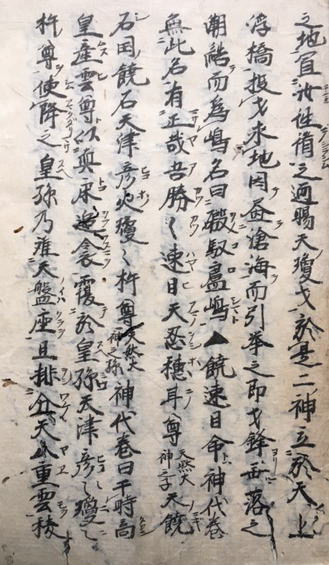 之地宜汝往循之廼賜天瓊戈於是二神立於天上
浮橋投戈求地因畫滄海而引举之即戈鋒垂落之
潮結而為嶋名曰磤馭盧嶋▲饒速日命神代巻
無此名有正哉吾勝〻速日天忍穂耳尊 天照大神之子 天饒
石国饒石天津彦火瓊〻杵尊 天照大神之孫 神代巻曰于時高
皇産霊尊以真床追衾覆於皇孫天津彦〻瓊〻
杵尊使降之皇孫乃離天盤座且排分天八重雲稜